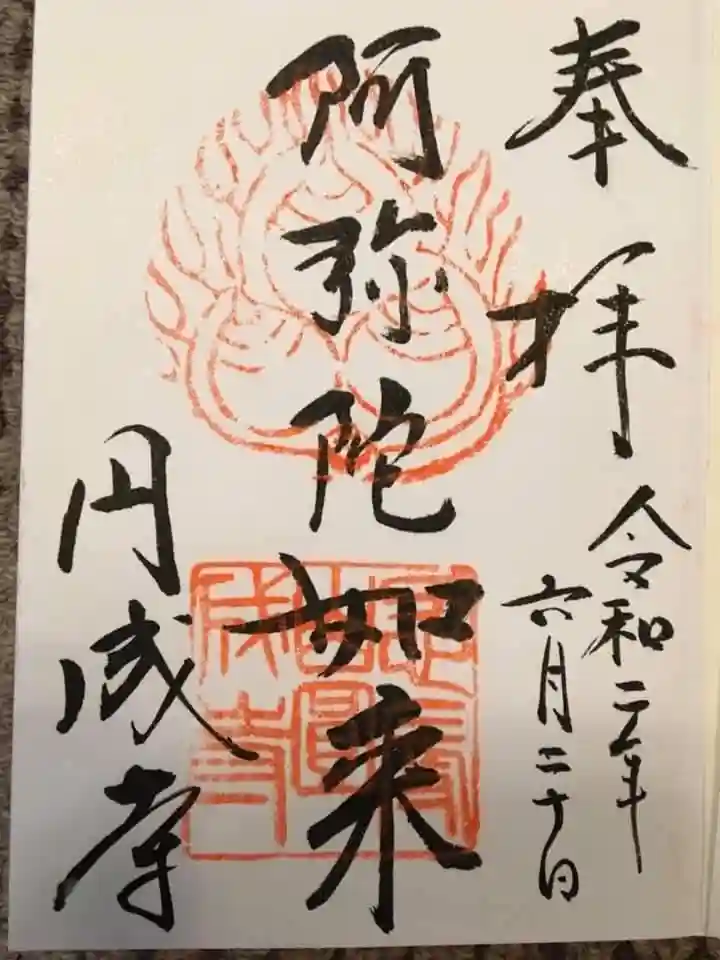 奉拝
令和二年
六月二十日
阿弥陀如来
円成寺